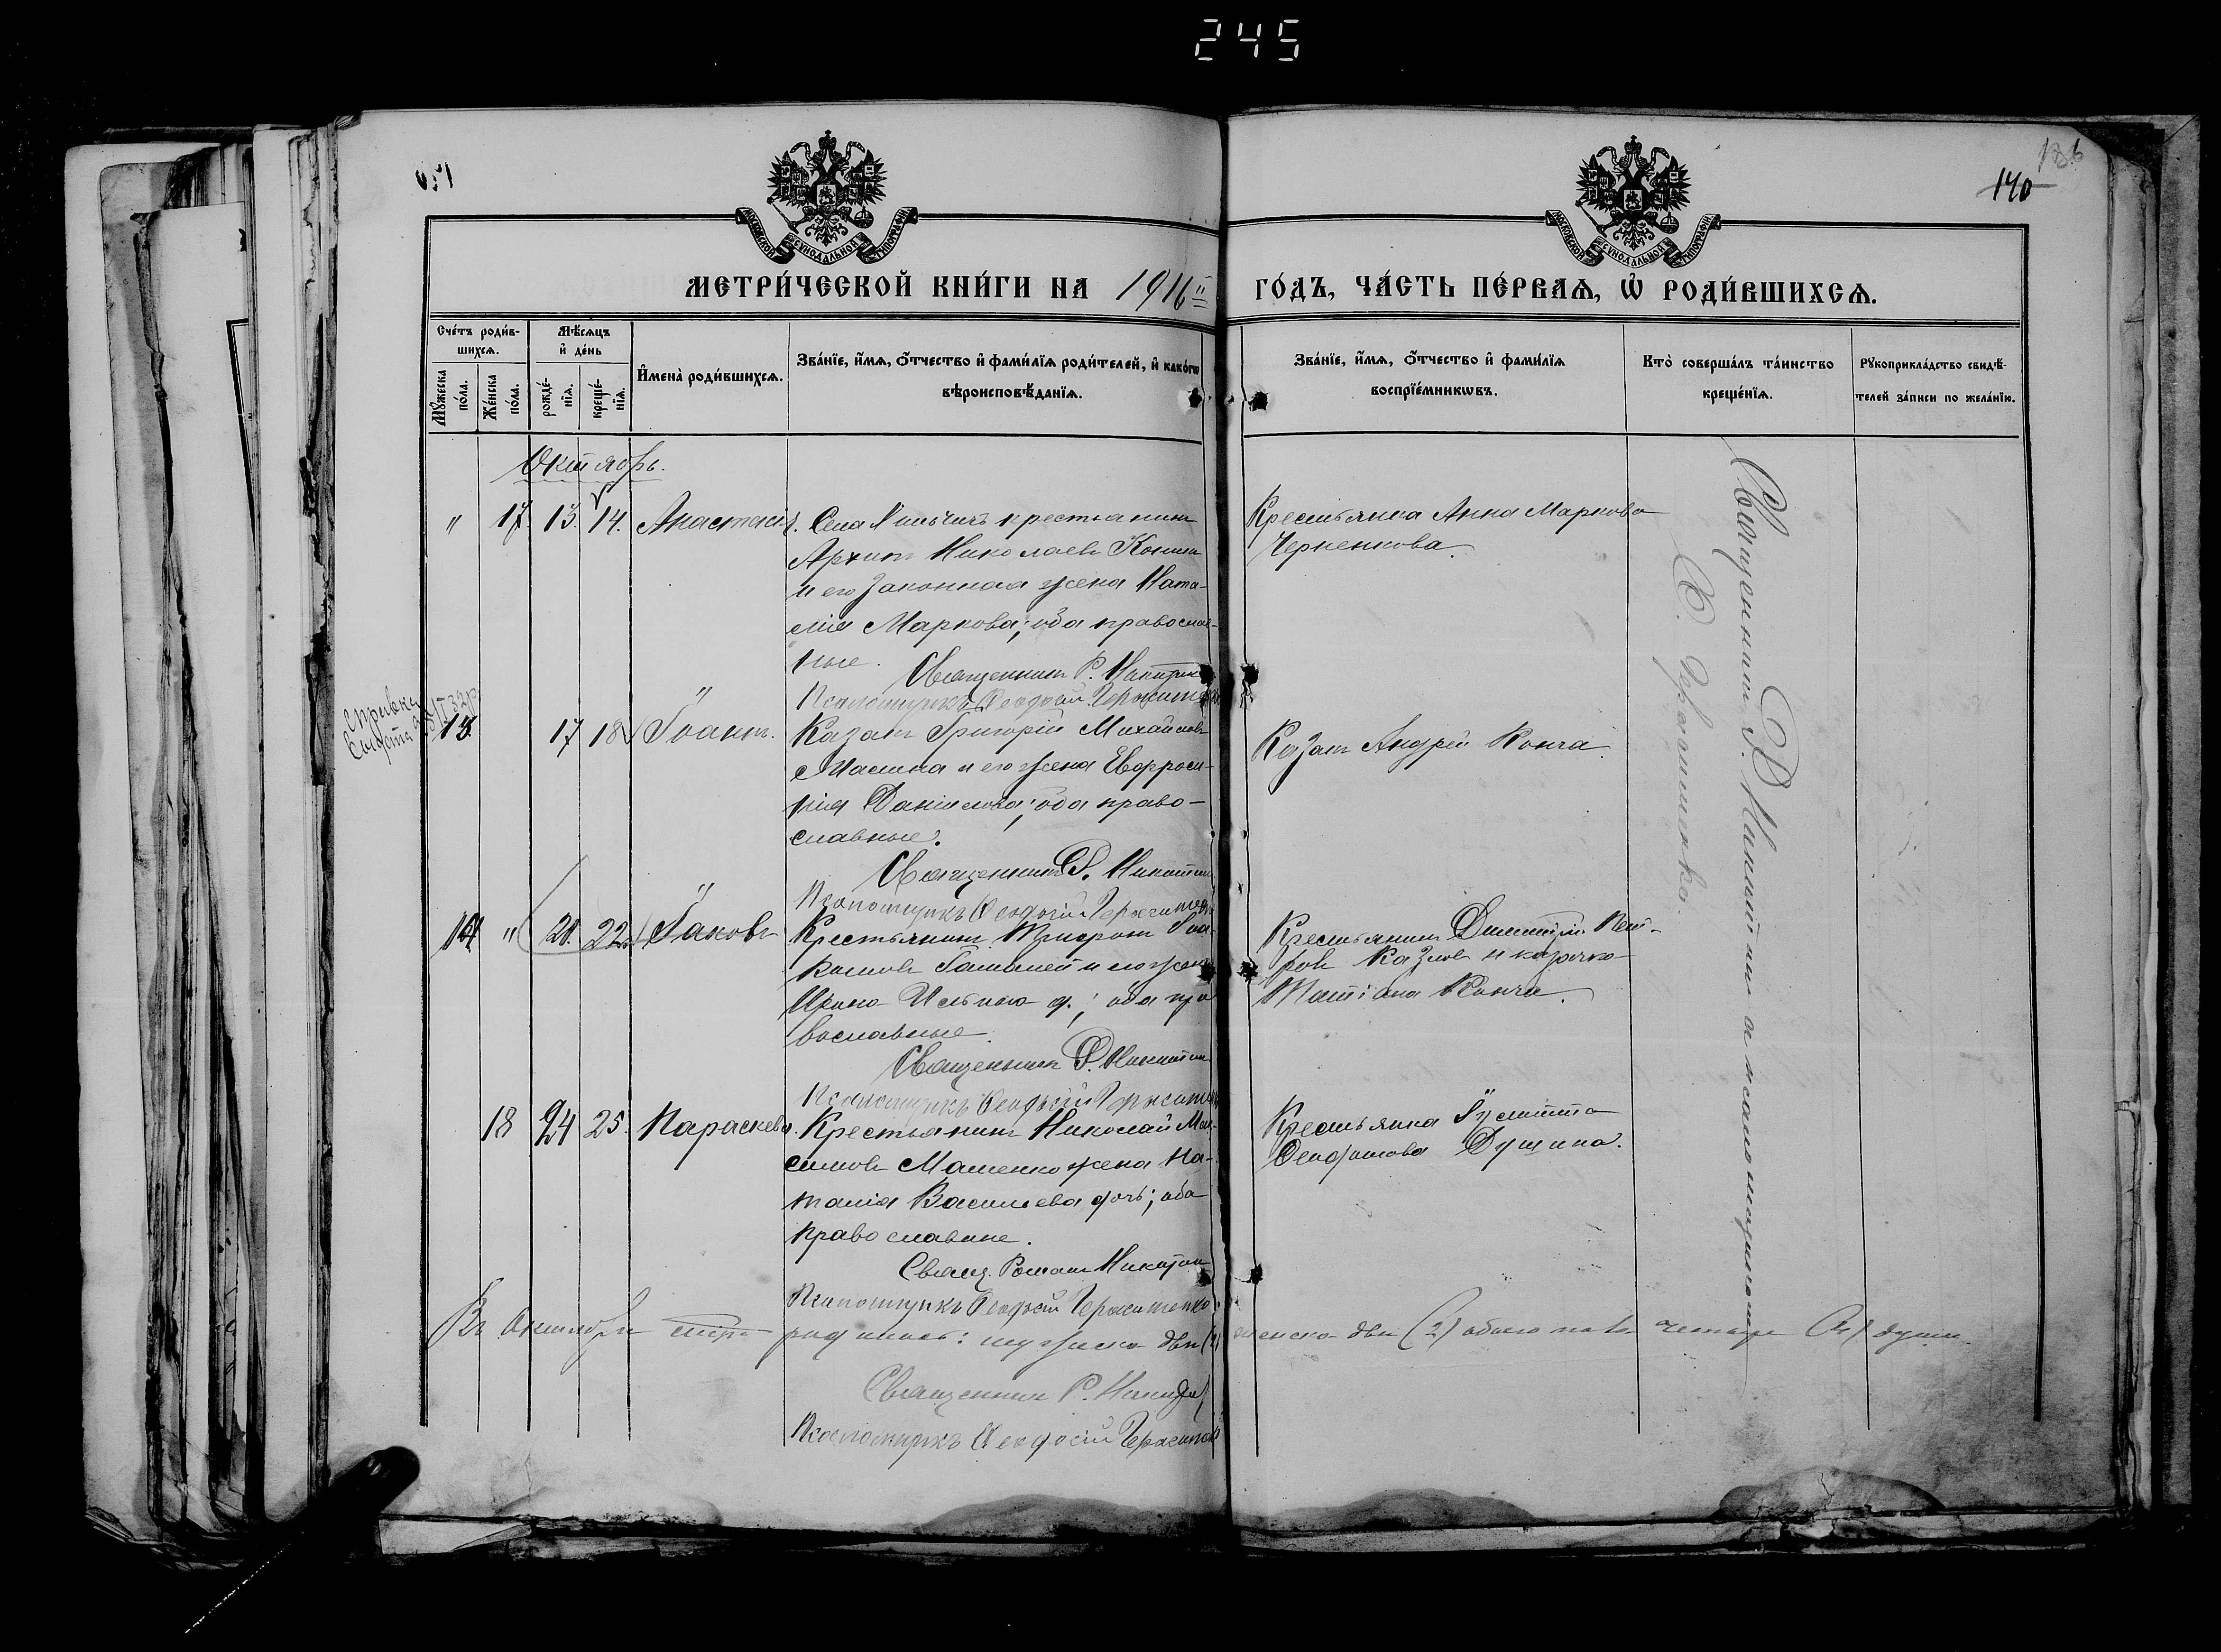 245
140
136
МОСКОВСКОЙ СѴНОДАЛЬНОЙ ТИПОГРАФІИ
МОСКОВСКОЙ СѴНОДАЛЬНОЙ ТИПОГРАФІИ
МЕТРИ́ЧЕСКОЙ КНИ́ГИ НА 1916 ГО́ДЪ, ЧА́СТЬ ПЕ́РВАѦ, Ѡ҆ РОДИ́ВШИХСѦ.
Сче́тъ роди́в-
шихсѧ.
Мꙋ́жеска по́ла.
Же́нска по́ла.
Мѣ́сѧцъ
и҆ де́нь
рожде́-
нїѧ.
креще́-
нїѧ.
И҆мена̀ роди́вшихсѧ.
Зва́нїе, и҆́мѧ, ѻ҆́тчество и҆ фами́лїѧ роди́телей, и҆ како́гѡ
вѣроисповѣ́данїѧ.
Зва́нїе, и҆́мѧ, ѻ҆́тчество и҆ фами́лїѧ
воспрїе́мникѡвъ.
Кто̀ соверша́лъ та́инство
креще́нїѧ.
Рꙋкоприкла́дство свидѣ́-
телей за́писи по жела́нїю.
Октябрь.
" 17. 13. 14. Анастасія. Села крестьянинъ
Архипъ Николаевъ
и его законная жена Ната-
лія Маркова; оба православ-
ные.
Священникъ Р. Никитин
Псаломщикъ Ѳеодосій Герасименко
Крестьянка Анна Маркова
Черненкова.
справка
13. 17 18 Іоаннъ. Казакъ Григорій Михайловъ
и его жена Евфроси-
нія Даніилова; оба право-
славные.
Священникъ Р. Никитин
Псаломщикъ Ѳеодосій Герасименко
Казакъ Андрей Конча.
14 " 20. 22. Іаковъ Крестьянинъ Трифонъ Іоа-
кимовъ и его жена
Ирина Ильина д.; оба пра
вославные.
Священникъ Р. Никитин
Псаломщикъ Ѳеодосій Герасименко
Крестьянинъ Димитрій Пет-
ровъ Казлов и казачка
Татіана Конча.
18 24 25. Параскева. Крестьянинъ Николай Мак-
симовъ Мащенко жена На-
талія Васильева дочь; оба
православные.
Свящ. Романъ Никитин
Псаломщикъ Ѳеодосій Герасименко
Крестьянка Іулитта
Душина.
Священникъ Р. Никитин а псаломщикомъ
Ѳ. Герасименко.
Въ октябрѣ родилось: мужска два (2) женска два (2) обоего пола четыре (4) души.
Священникъ Р. Никитин
Псаломщикъ Ѳеодосій Герасименко